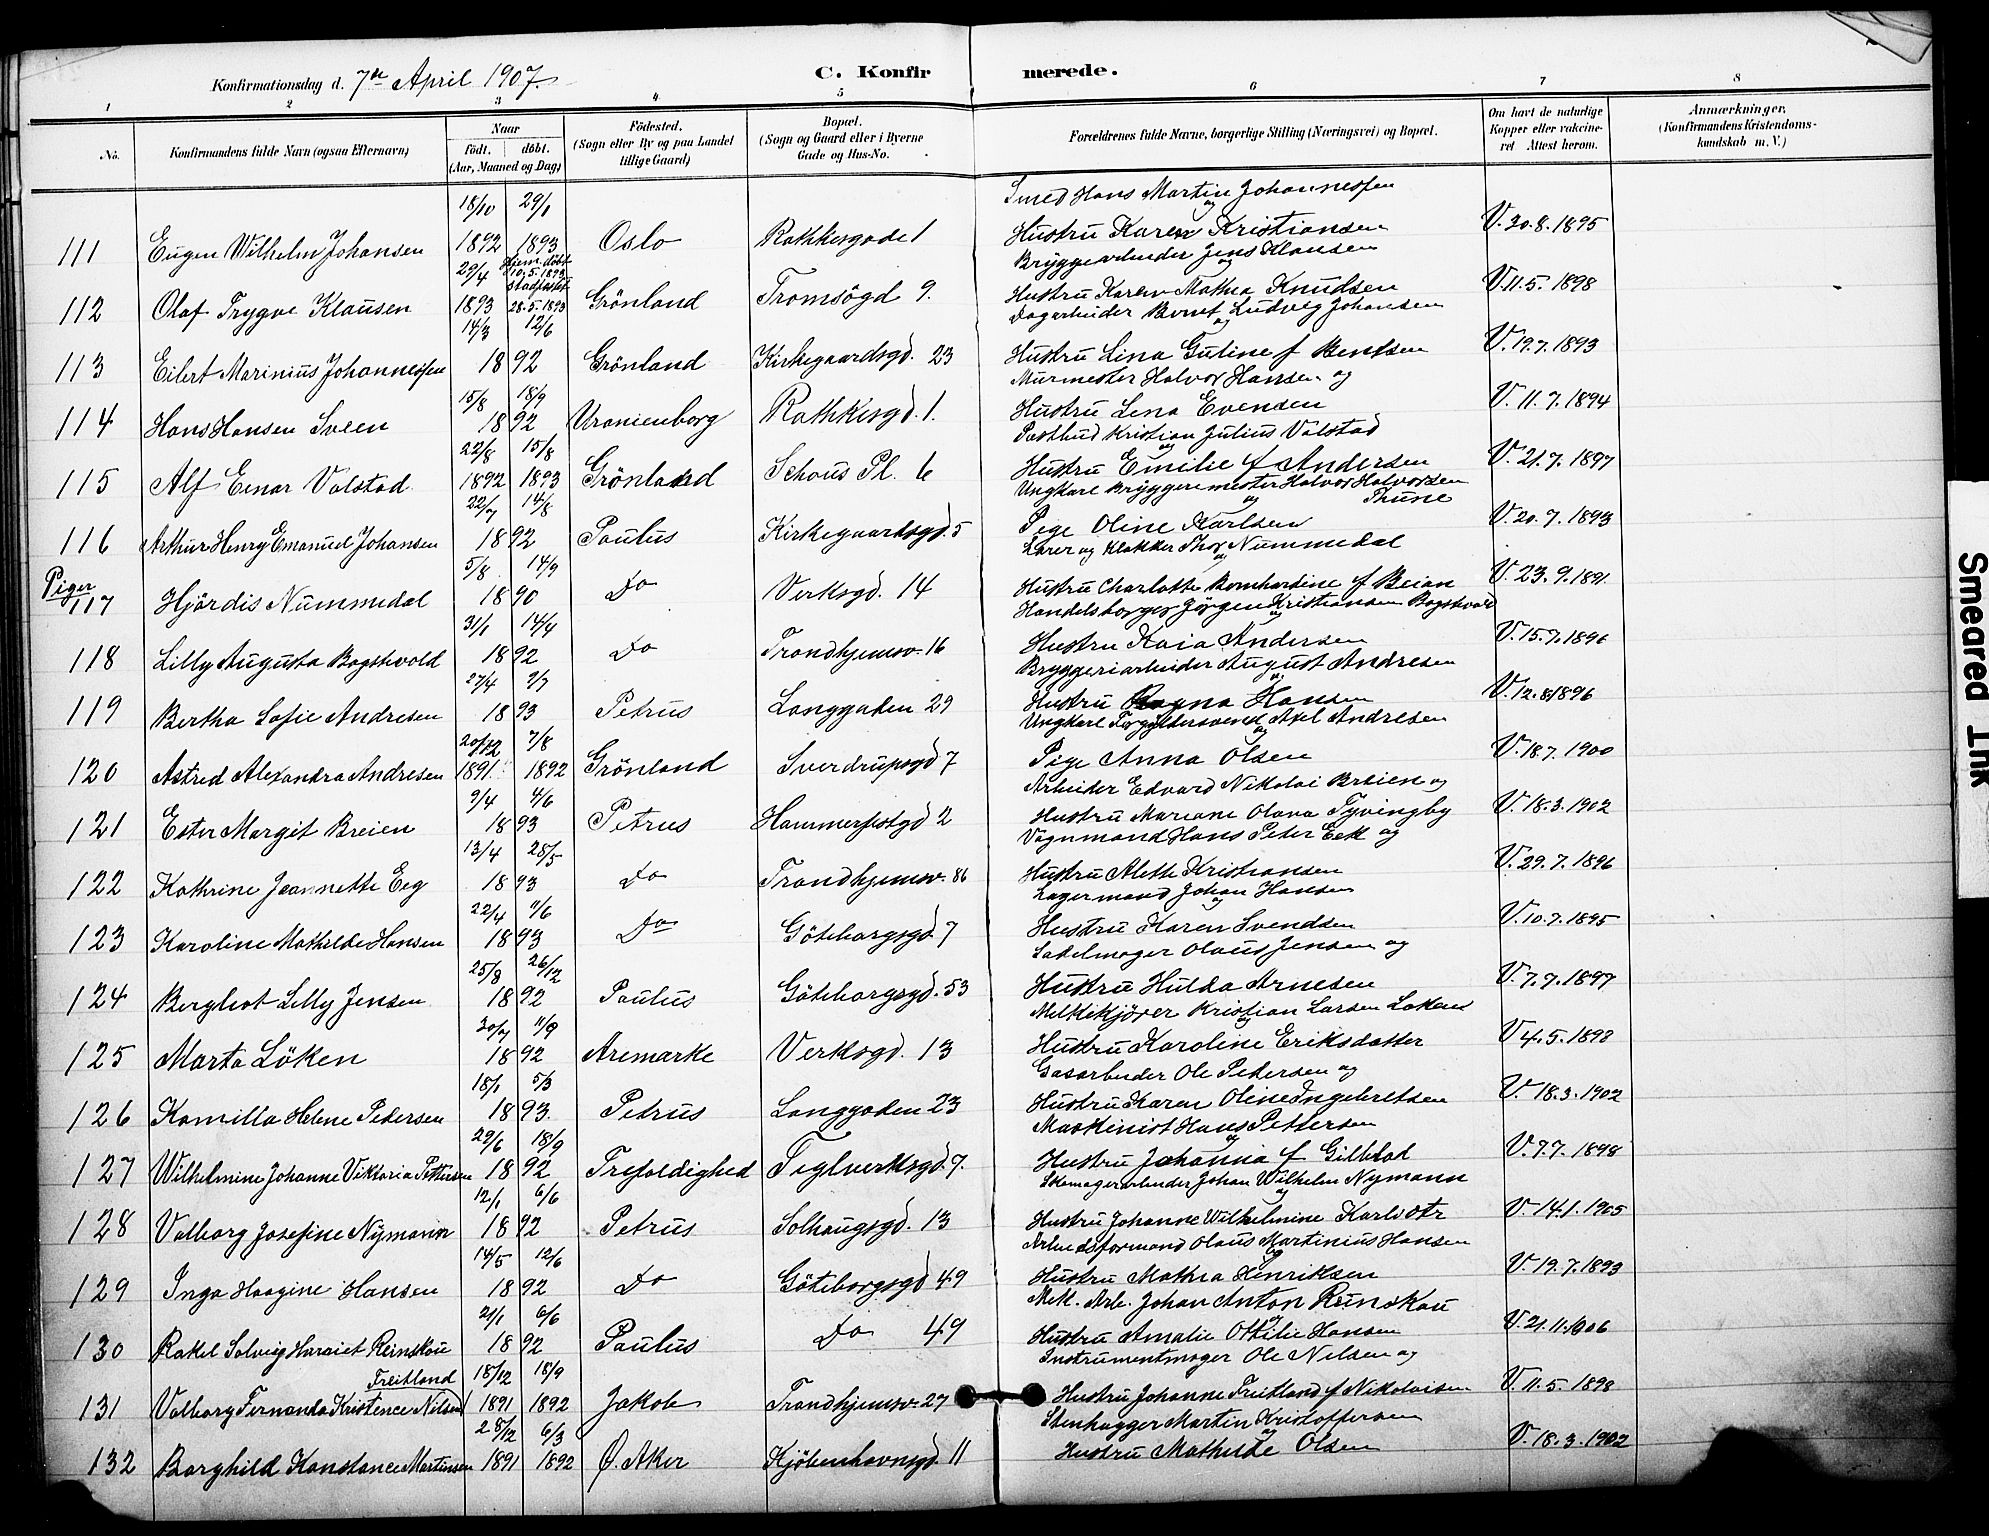 Konfirmationsdag d. 7de April 1907. C. Konfirmerede.
1 2 3 4 5 6 7 8
No. Konfirmandens fulde Navn (ogsaa Efternavn) Naar født. døbt. (Aar, Maaned og Dag) Fødested. (Sogn eller By og paa Landet tillige Gaard) Bopæl. (Sogn og Gaard eller i Byerne Gade og Hus-No. Forældrenes fulde Navne, borgerlige Stilling (Næringsvei) og Bopæl. Om havt de naturlige Kopper eller vakcineret Attest herom. Anmærkninger, (Konfirmandens Kristendomskundskab m. V.)
18/10 29/1 Smed Hans Martin Johannessen og
111 Eugen Wilhelm Johansen 1892 1893 Oslo Rathkesgade 1 Hustru Karen Kristiansen V. 30.8.1895
29/4 Hjem.døbt 10.5.1893 stadfæstet Bryggearbeider Jens Klausen og
112 Olaf Trygve Klausen 1893 28.5.1893 Grönland Tromsögd 9. Hustru Karen Mathea Knudsen V. 11.5.1898
14/3 12/6 Dagarbeider Bernt Ludvig Johansen og
113 Eilert Marinius Johannessen 1892 Grönland Kirkegaardsgd. 23 Hustru Lina Gutine f Bentsen V. 19.7.1893
15/8 18/9 Murmester Halvor Hansen og
114 Hans Hansen Sveen 1892 Uranienborg Rathkesgd. 1. Hustru Lena Evensen V. 11.7.1894
22/8 15/8 Postbud Kristian Julius Valstad og
115 Alf Einar Valstad 1892 1893 Grönland Schous Pl. 6 Hustru Emilie f Andersen V. 21.7.1897
22/7 14/8 Ungkarl Bryggeremester Halvor Halvorsen Thune og
116 Arthur Henry Emanuel Johansen 1892 Paulus Kirkegaardsgd. 5 Pige Oline Karlsen V. 20.7.1893
Piger 5/8 14/9 Lærer og Klokker Thor Nummedal og
117 Hjördis Nummedal 1890 Do Verksgd. 14 Hustru Charlotte Bernhardine f Beian V. 23.9.1891.
31/1 14/4 Handelsborger Jörgen Kristiansen Bagshvold og
118 Lilly Augusta Bagshvold 1892 Do Trondhjemsv. 16 Hustru Kaia Andersen V. 15.7.1896
27/4 2/7 Bryggeriarbeider August Andresen og
119 Bertha Sofie Andresen 1893 Petrus Langgaden 29 Hustru Ragna Hansen V. 12.8.1896
20/12 7/8 Ungkarl Forgyldersvend Axel Andresen og
120 Astrid Alexandra Andresen 1891. 1892 Grönland Sverdrupsgd 7 Pige Anna Olsen V. 18.7.1900
9/4 4/6 Arbeider Edvard Nikolai Breien og
121 Ester Margit Breien 1893 Petrus Hammerfestgd 2 Hustru Mariane Olava Tyvingby V. 18.3.1902
13/4 28/5 Vognmand Hans Peter Eek og
122 Kathrine Jeannette Eeg 1893 Do Trondhjemsv. 86 Hustru Alette Kristiansen V. 29.7.1896
22/4 11/6 Lagermand Johan Hansen og
123 Karoline Mathilde Hansen 1893 Do Göteborgsgd. 7 Hustru Karen Svendsen V. 10.7.1895
25/8 26/12 Sadelmager Olaus Jensen og
124 Bergliot Lilly Jensen 1892 Paulus Göteborgsgd. 53 Hustru Hulda Arnesen V. 7.7.1897
30/7 11/9 Melkekjører Kristian Larsen Løken og
125 Marta Löken 1892 Aremarke Verksgd. 13 Hustru Karoline Eriksdatter V. 4.5.1898
18/1 5/3 Gasarbeider Ole Pedersen og
126 Kamilla Helene Pedersen 1893. Petrus Langgaden 23 Hustru Karen Oline Ingebretsen V. 18.3.1902
29/6 18/9 Maskinist Hans Pettersen og
127 Wilhelmine Johanne Viktoria Pettersen 1892 Trefoldighed Teglverksgd. 7. Hustru Johanna f Gillelad V. 7.7.1898
12/1 6/6 Skomagerarbeider Johan Wilhelm Nymann og
128 Valborg Josefine Nymann 1892 Petrus Solhaugsgd. 13 Hustru Johanne Wilhelmine Karlsdtr V. 14.1.1905
14/5 12/6 Arbeidsformand Olaus Martinius Hansen og
129 Inga Haagine Hansen 1892 Do Göteborgsgd 49 Hustru Mathea Henriksen V. 19.7.1893
21/1 6/6 Mek. Arb. Johan Anton Reinskou og
130 Rakel Solveig Harriet Reinskou 1892 Paulus Do 49 Hustru Amalie Ottilie Hansen V. 21.11.1906
Freitland 18/12 18/9 Instrumentmager Ole Nilsen og
131 Valborg Fernanda Kristence Nilsen 1891 1892 Jakob Trondhjemsv. 27 Hustru Johanne Freitland f Nikolaisen V. 11.5.1898
28/12 6/3 Stenhugger Martin Kristoffersen og
132 Borghild Konstance Martinsen 1891 1892 Ø. Aker Kjöbenhavnsgd. 11 Hustru Mathilde Olsen V. 18.3.1902
Smeared Ink